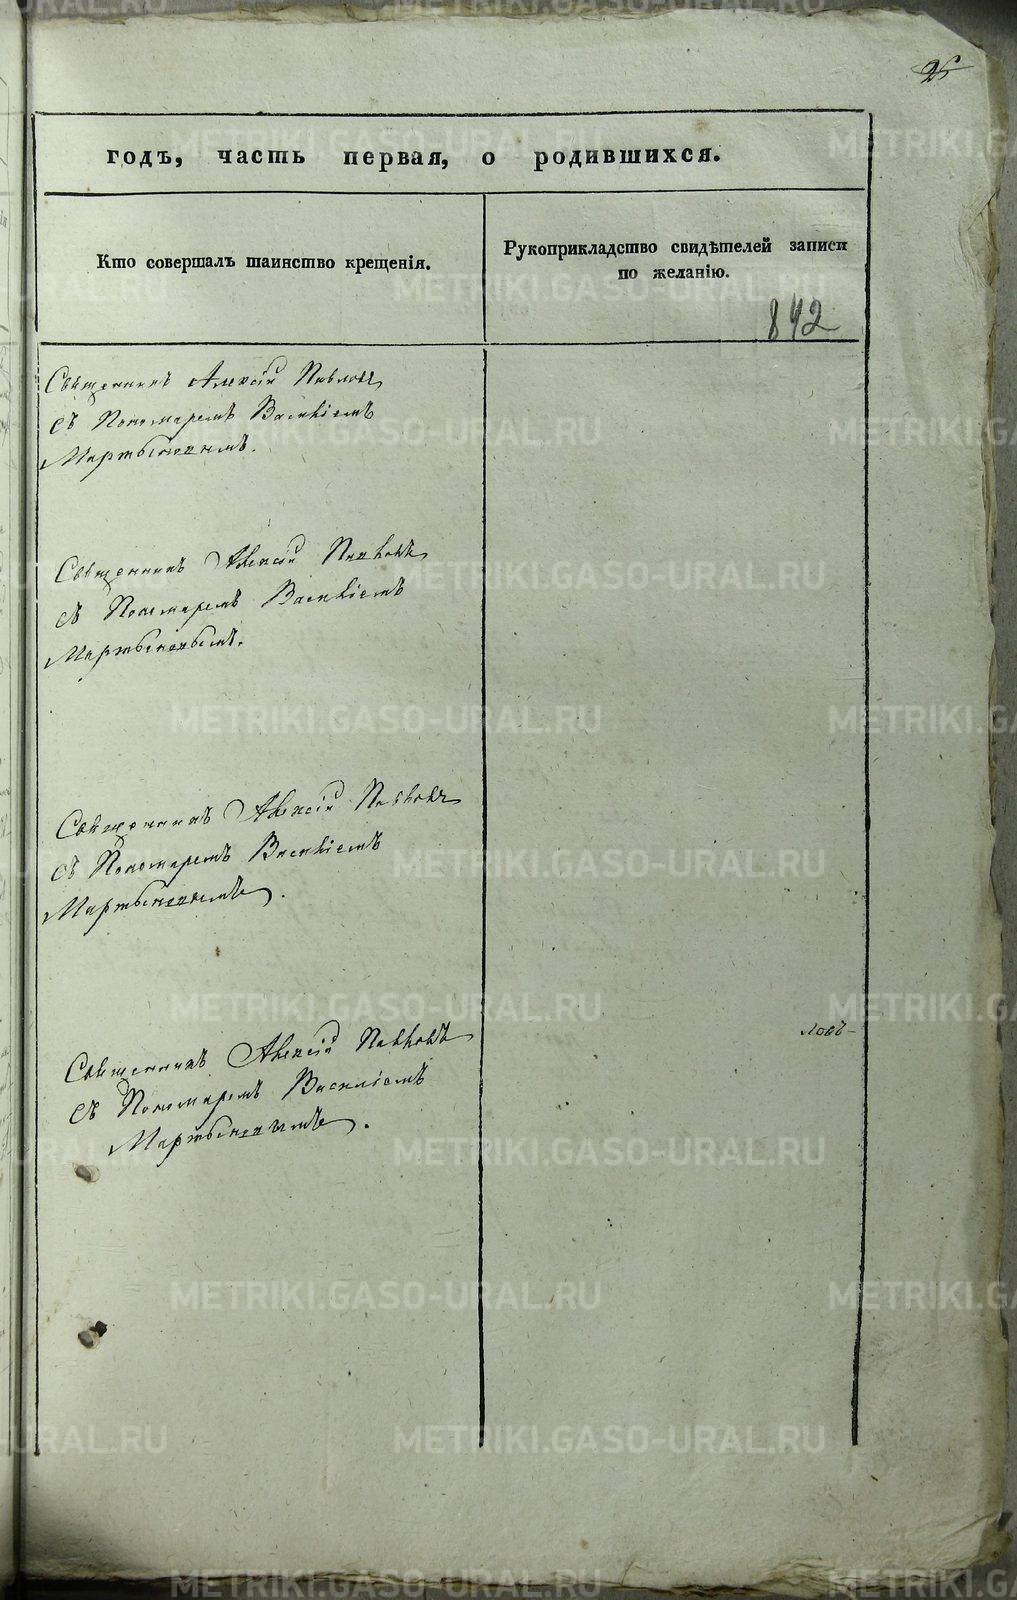 25
годъ, часть первая, о родившихся.
Кто совершалъ таинство крещенія.
Рукоприкладство свидѣтелей записи
по желанію.
842
Священникъ Алексій Павловъ
съ Пономаремъ Василіемъ
Мартыновымъ.
Священникъ Алексій Павловъ
съ Пономаремъ Василіемъ
Мартыновымъ.
Священникъ Алексій Павловъ
съ Пономаремъ Василіемъ
Мартыновымъ.
Священникъ Алексій Павловъ
съ Пономаремъ Василіемъ
Мартыновымъ.
ловъ
METRIKI.GASO-URAL.RU